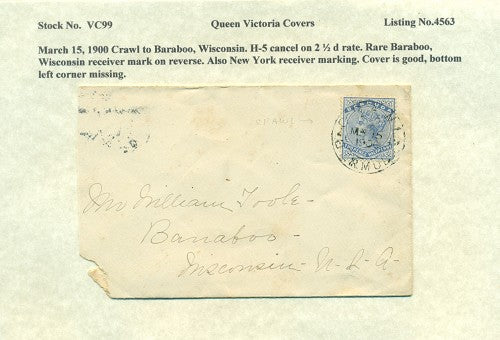 Stock No. VC99 Queen Victoria Covers Listing No.4563
March 15, 1900 Crawl to Baraboo, Wisconsin. H-5 cancel on 2 ½ d rate. Rare Baraboo,
Wisconsin receiver mark on reverse. Also New York receiver marking. Cover is good, bottom
left corner missing.
BERMUDA
CRAWL →
Mr William Toole-
Baraboo-
Wisconsin- U-S-A-